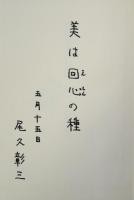 美は回心の種
えしん
五月十五日
尾久彰三